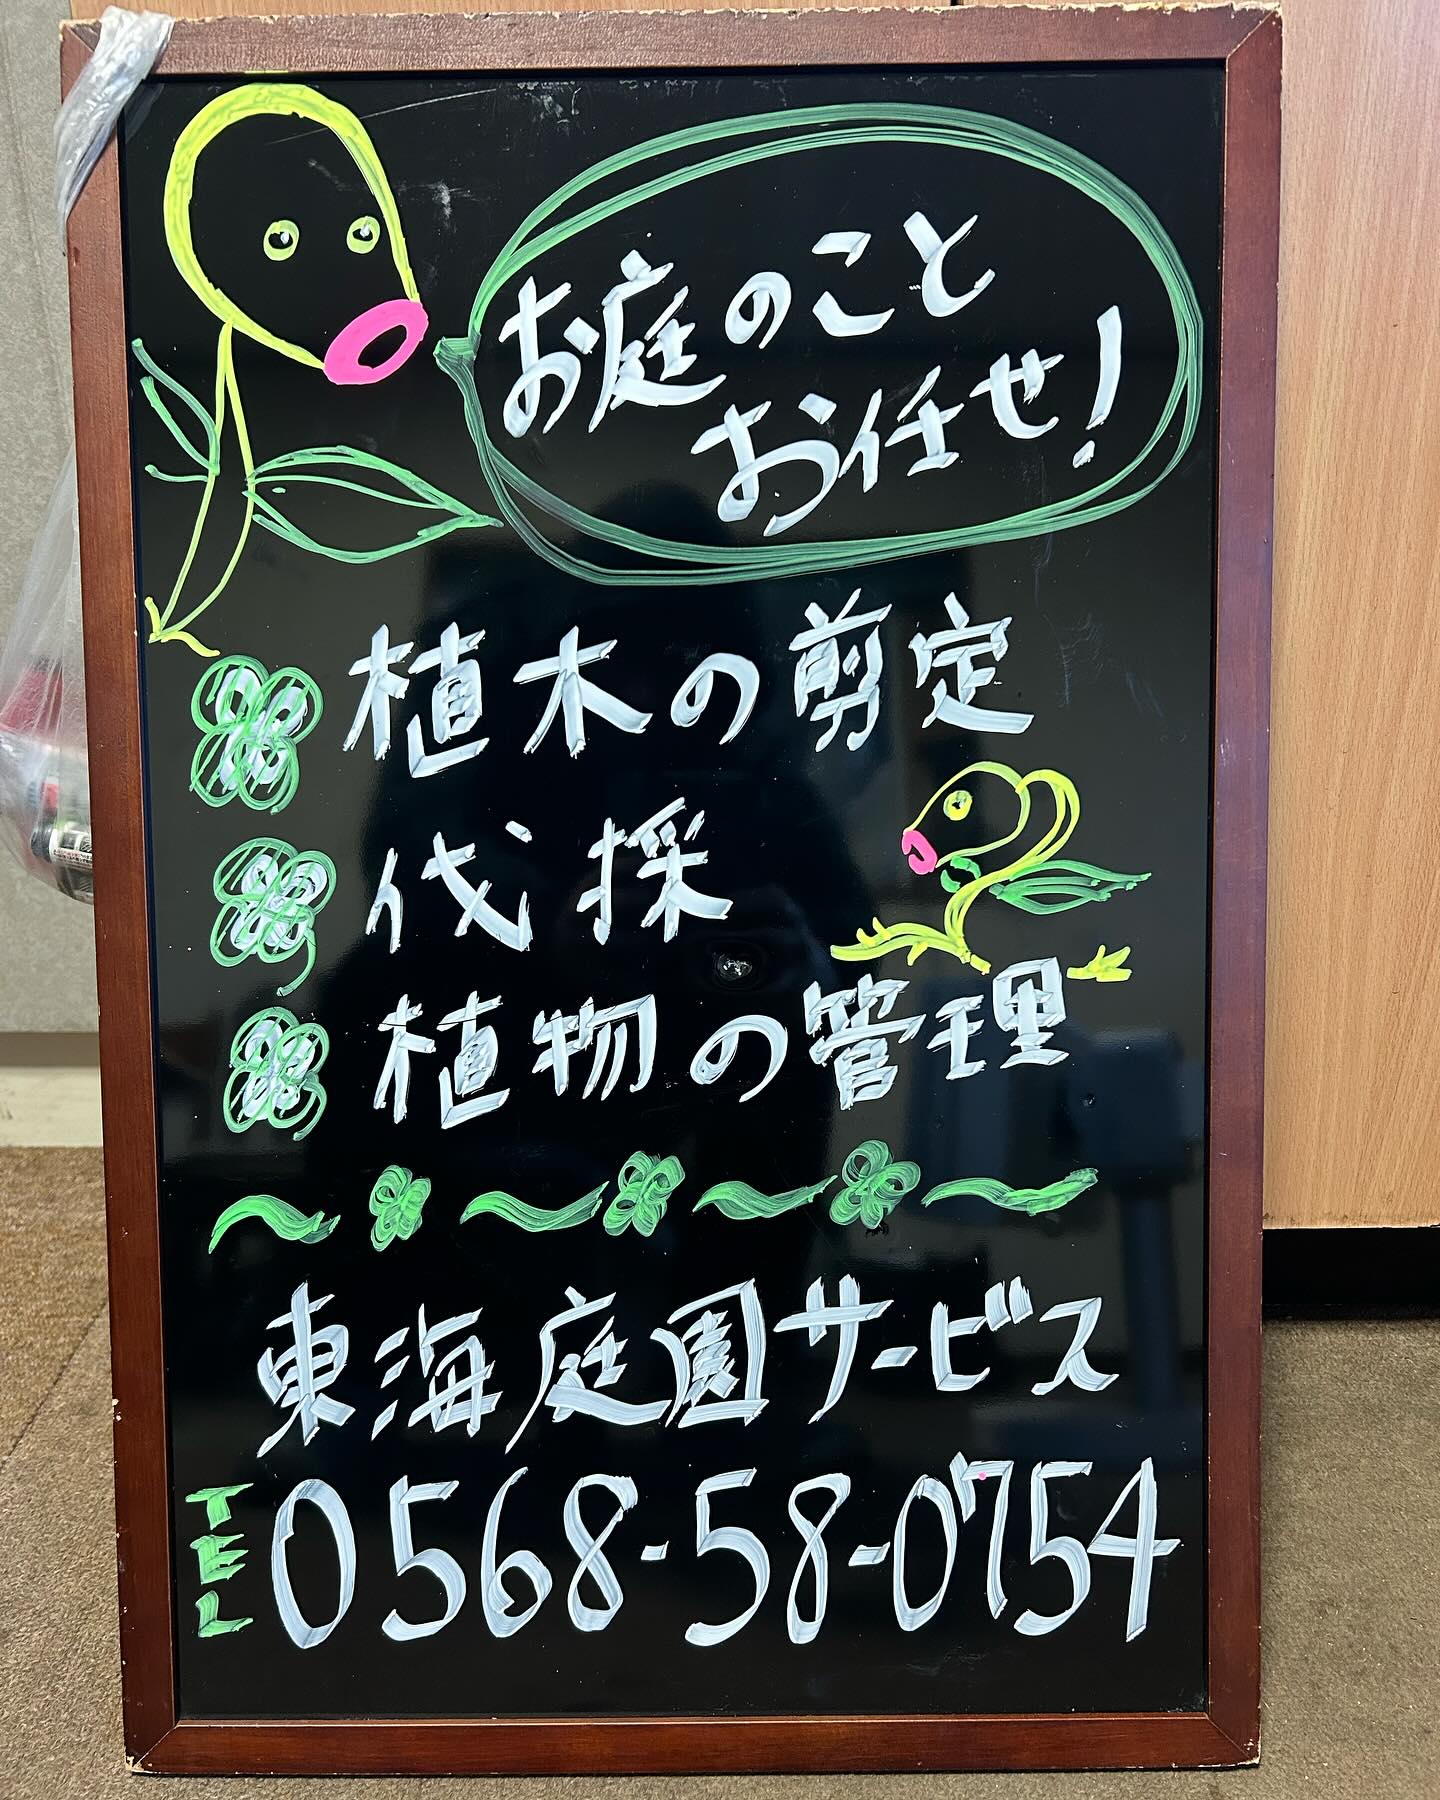 お庭のこと
お任せ!
植木の剪定
伐採
植物の管理
東海庭園サービス
TEL 0568-58-0754